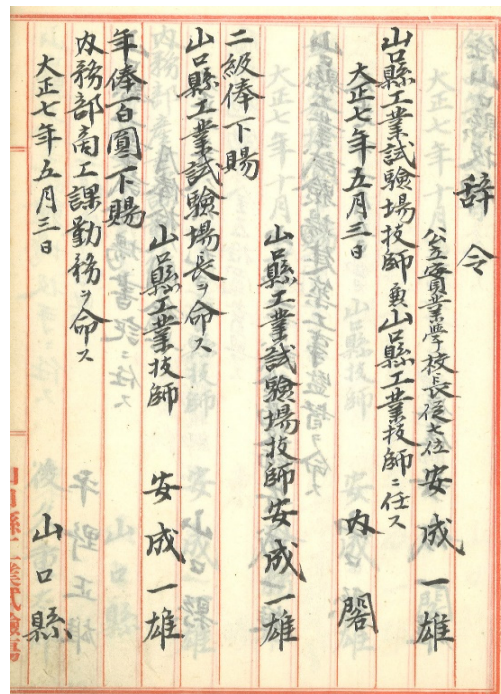 辞令
公立實業學校長從七位 安成一雄
山口縣工業試驗場技師兼山口縣工業技師ニ任ス
大正七年五月三日 内閣
山口縣工業試驗場技師 安成一雄
二級俸下賜
山口縣工業試驗場長ヲ命ス
山口縣工業技師 安成一雄
年俸百圓下賜
内務部商工課勤務ヲ命ス
大正七年五月三日 山口縣